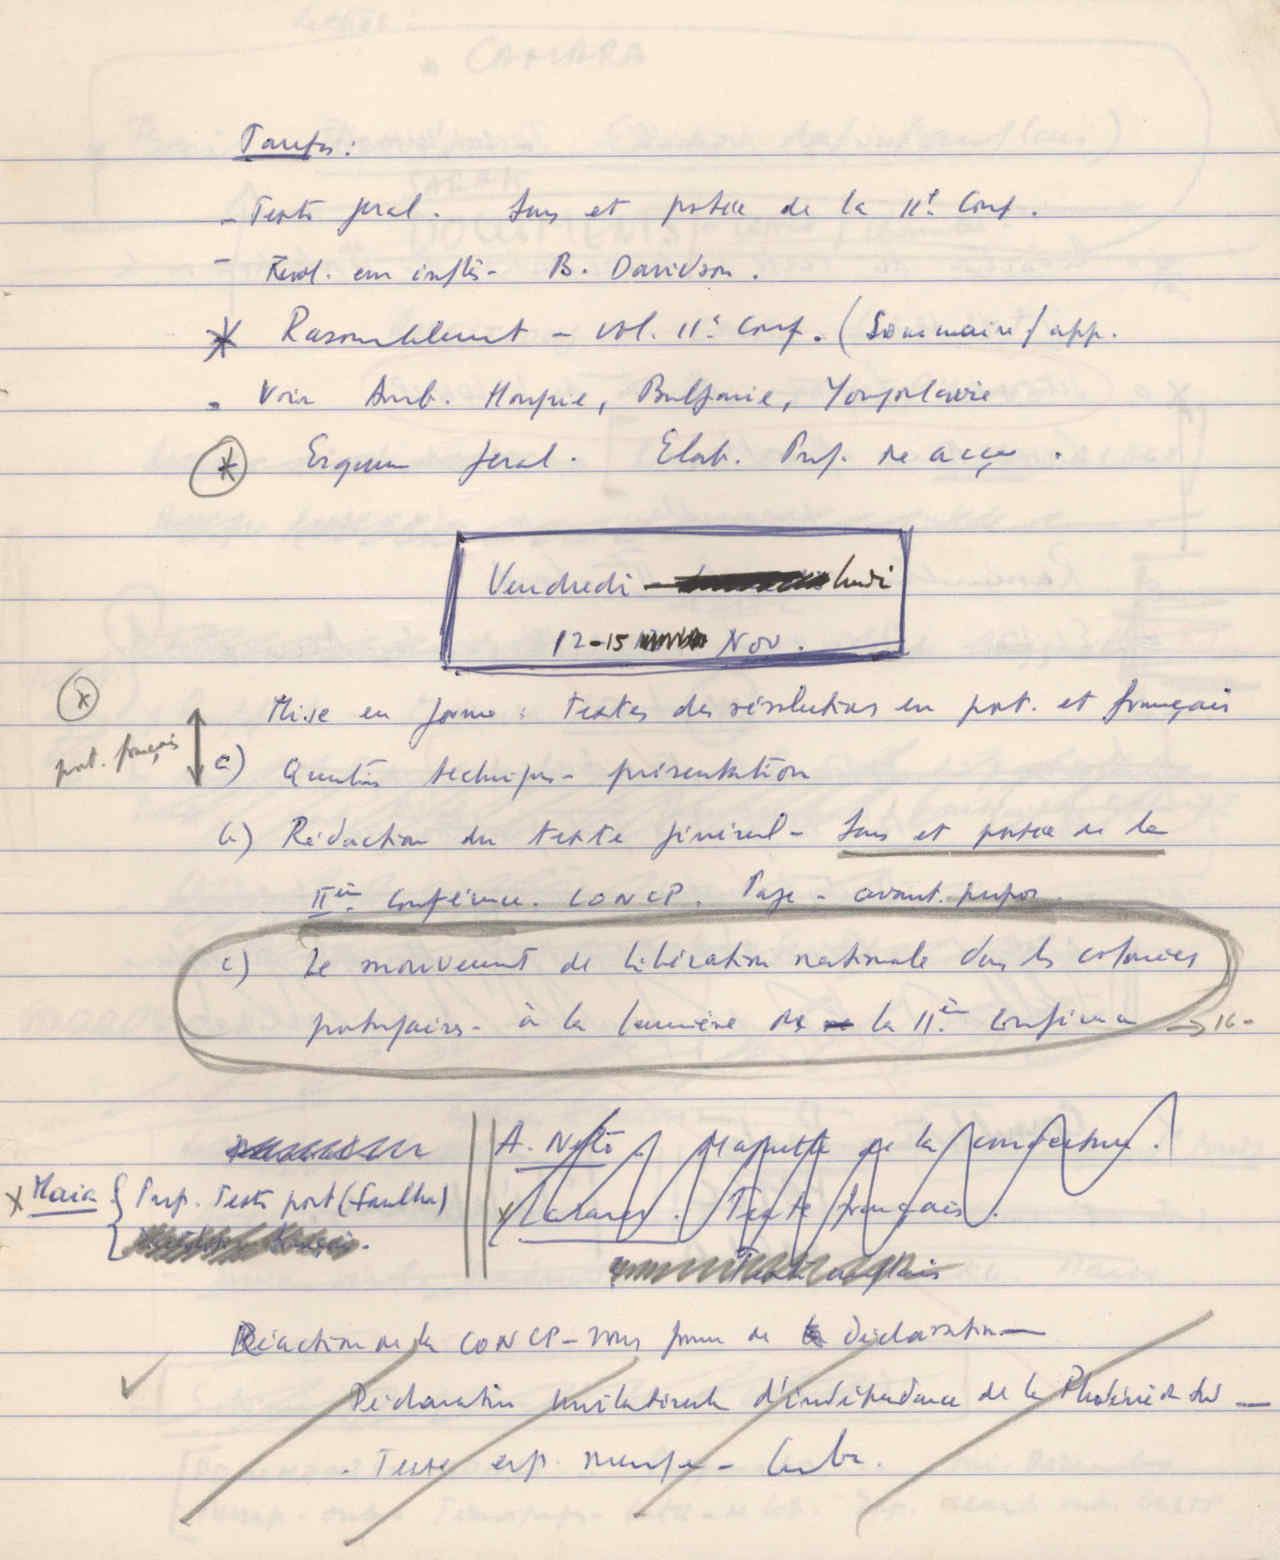 Tarefas:
- Texto geral. Sens et portée de la IIè Conf.
- Resol. em inglês - B. Davidson.
* Rassemblement - vol. IIè Conf. (Sommaire / app.
. Voir Amb. Hongrie, Bulgarie, Yougoslavie
* Esquema geral. Elab. Prog. de acção.
Vendredi - lundi
12-15 Nov.
* Mise en forme : textes des résolutions en port. et français
port. français
a) Questões techniques - présentation
b) Rédaction du texte général - Sens et portée de la
IIè Conférence. CONCP. Page - avant-propos
c) Le mouvement de libération nationale dans les colonies
portugaises - à la lumière de la IIè Conférence → 16-
A. Neto. Maquette de la couverture.
x Maia { Prep. Texto port
x Lazaro. Texte français.
Texte anglais
Réaction de la CONCP - sous forme de déclaration -
Déclaration unilatérale d'indépendance de la Rhodésie du Sud -
. Texte esp. - Cuba.